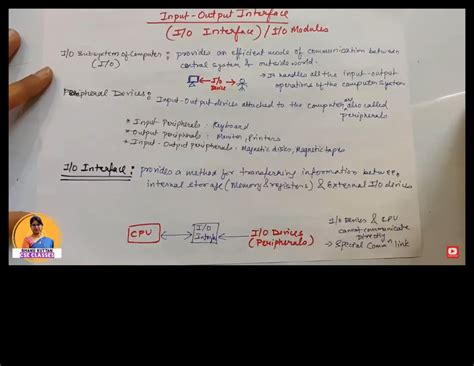 Input-Output Interface
(I/O Interface) / I/O Modules
I/O Subsystem of Computer : provides an efficient mode of communication between
(I/O) central system & outside world.
I/O
Device
→ It handles all the input-output
operations of the computer system
Peripheral Devices : Input-Output devices attached to the computer are also called
peripherals
* Input Peripherals : Keyboard
* Output peripherals : Monitor, Printers
* Input-Output peripherals : Magnetic disks, Magnetic tapes
I/O Interface : provides a method for transferring information between
internal storage (Memory & registers) & External I/O devices
CPU
I/O
Interface
I/O Devices
(Peripherals)
I/O Devices & CPU
cannot communicate
Directly
→ Special Commn link
SHANU KUTTAN
CSE CLASSES